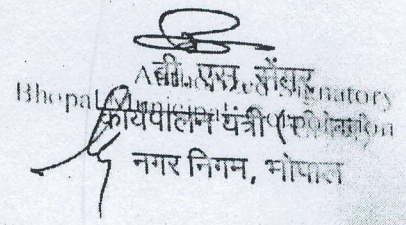 Authorised Signatory
बी. एस.
Bhopal Municipal Corporation
कार्यपालन यंत्री
नगर निगम, भोपाल